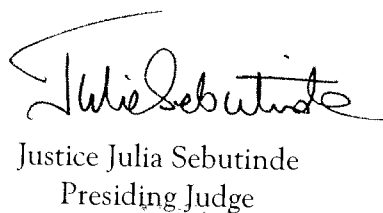 Julia Sebutinde
Justice Julia Sebutinde
Presiding Judge